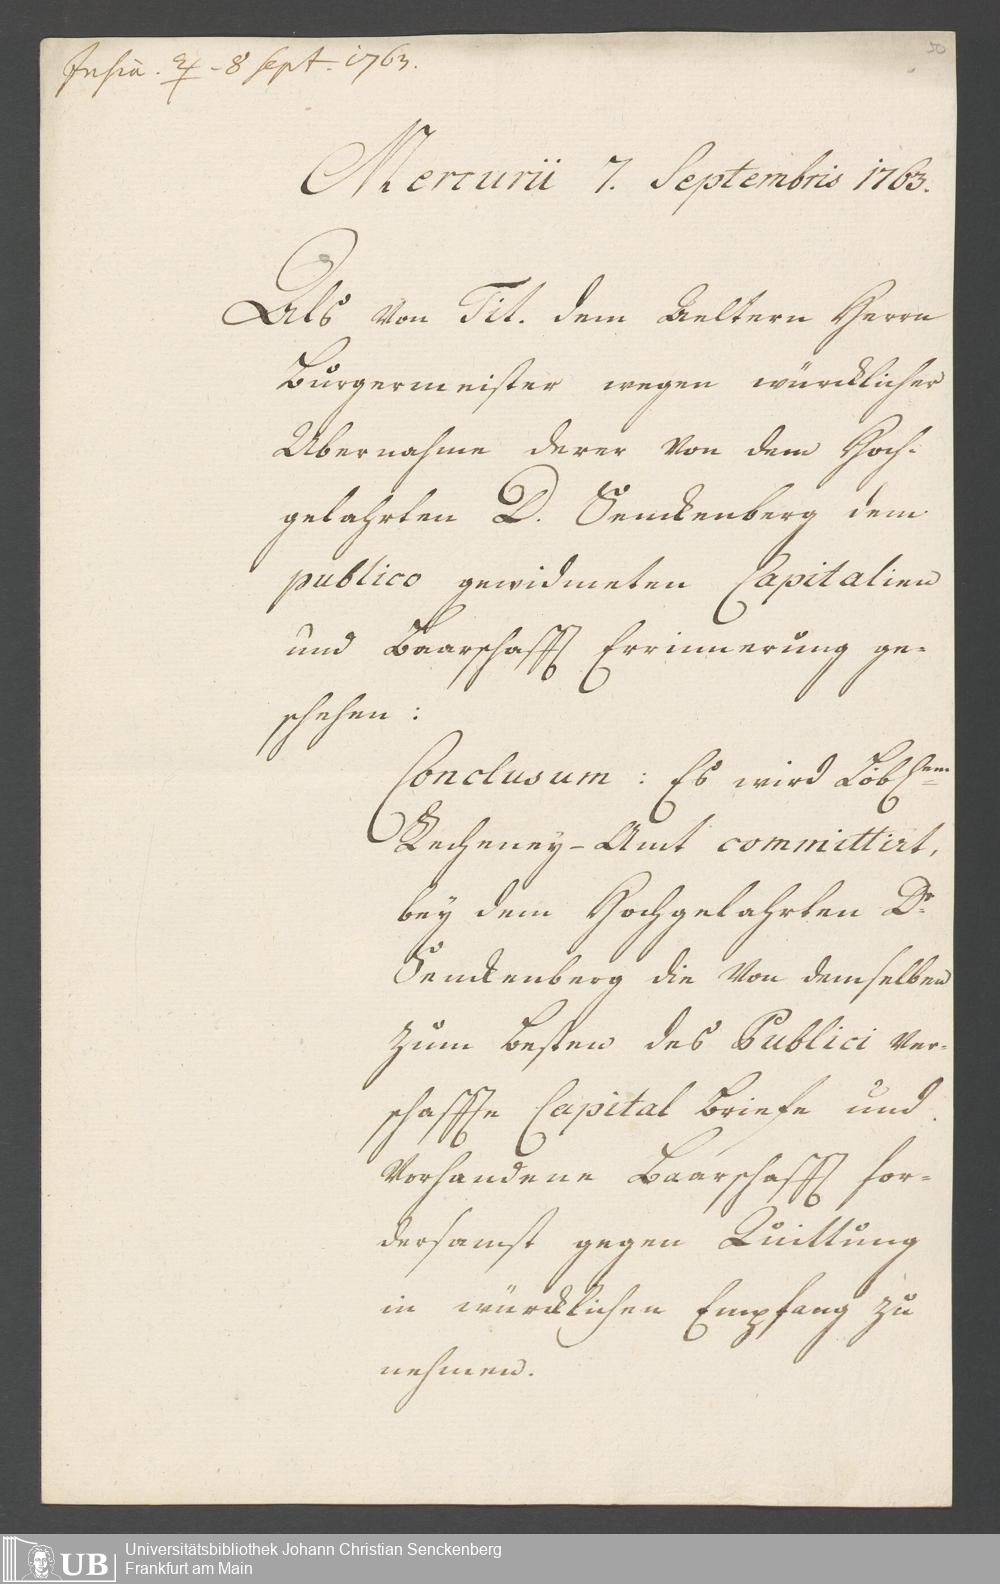 Insin. ♃ - 8 Sept. 1763.
50
Mercurii 7. Septembris 1763.
Als von Tit. dem Aeltern Herrn
Burgermeister wegen würcklicher
Ubernahme derer von dem Hoch-
gelahrten D. Senckenberg dem
publico gewidmeten Capitalien
und Baarschafft Errinnerung ge-
schehen:
Conclusum: Es wird Löblem
Recheney-Amt committirt,
bey dem Hochgelahrten Dr.
Senckenberg die von demselben
zum Besten des Publici ver-
schaffte Capital Briefe und
vorhandene Baarschafft for-
dersamst gegen Quittung
in würcklichen Empfang zu
nehmen.
UB Universitätsbibliothek Johann Christian Senckenberg
Frankfurt am Main